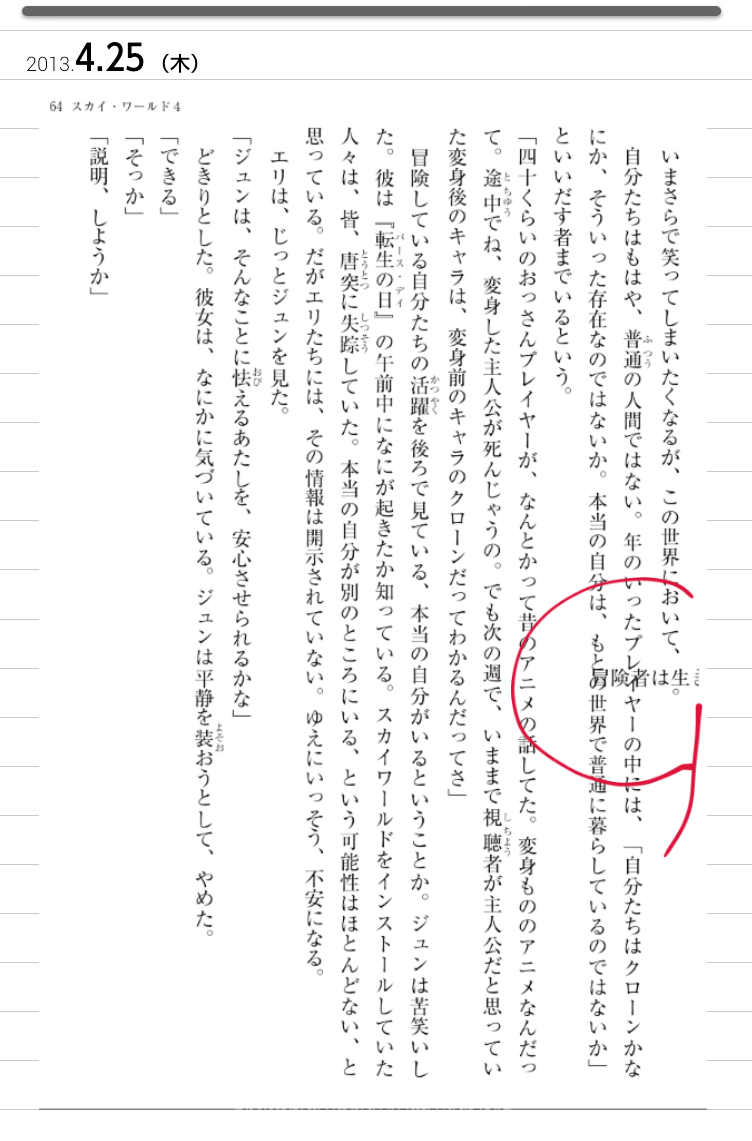 2013.4.25（木）
64 スカイ・ワールド4
いまさらで笑ってしまいたくなるが、この世界において、冒険者は生き
。
自分たちはもはや、普通の人間ではない。年のいったプレイヤーの中には、「自分たちはクローンかな
にか、そういった存在なのではないか。本当の自分は、もとの世界で普通に暮らしているのではないか」
といいだす者までいるという。
「四十くらいのおっさんプレイヤーが、なんとかって昔のアニメの話してた。変身もののアニメなんだっ
て。途中でね、変身した主人公が死んじゃうの。でも次の週で、いままで視聴者が主人公だと思ってい
た変身後のキャラは、変身前のキャラのクローンだってわかるんだってさ」
冒険している自分たちの活躍を後ろで見ている、本当の自分がいるということか。ジュンは苦笑いし
た。彼は『転生の日』の午前中になにが起きたか知っている。スカイワールドをインストールしていた
人々は、皆、唐突に失踪していた。本当の自分が別のところにいる、という可能性はほとんどない、と
思っている。だがエリたちには、その情報は開示されていない。ゆえにいっそう、不安になる。
エリは、じっとジュンを見た。
「ジュンは、そんなことに怯えるあたしを、安心させられるかな」
どきりとした。彼女は、なにかに気づいている。ジュンは平静を装おうとして、やめた。
「できる」
「そっか」
「説明、しようか」